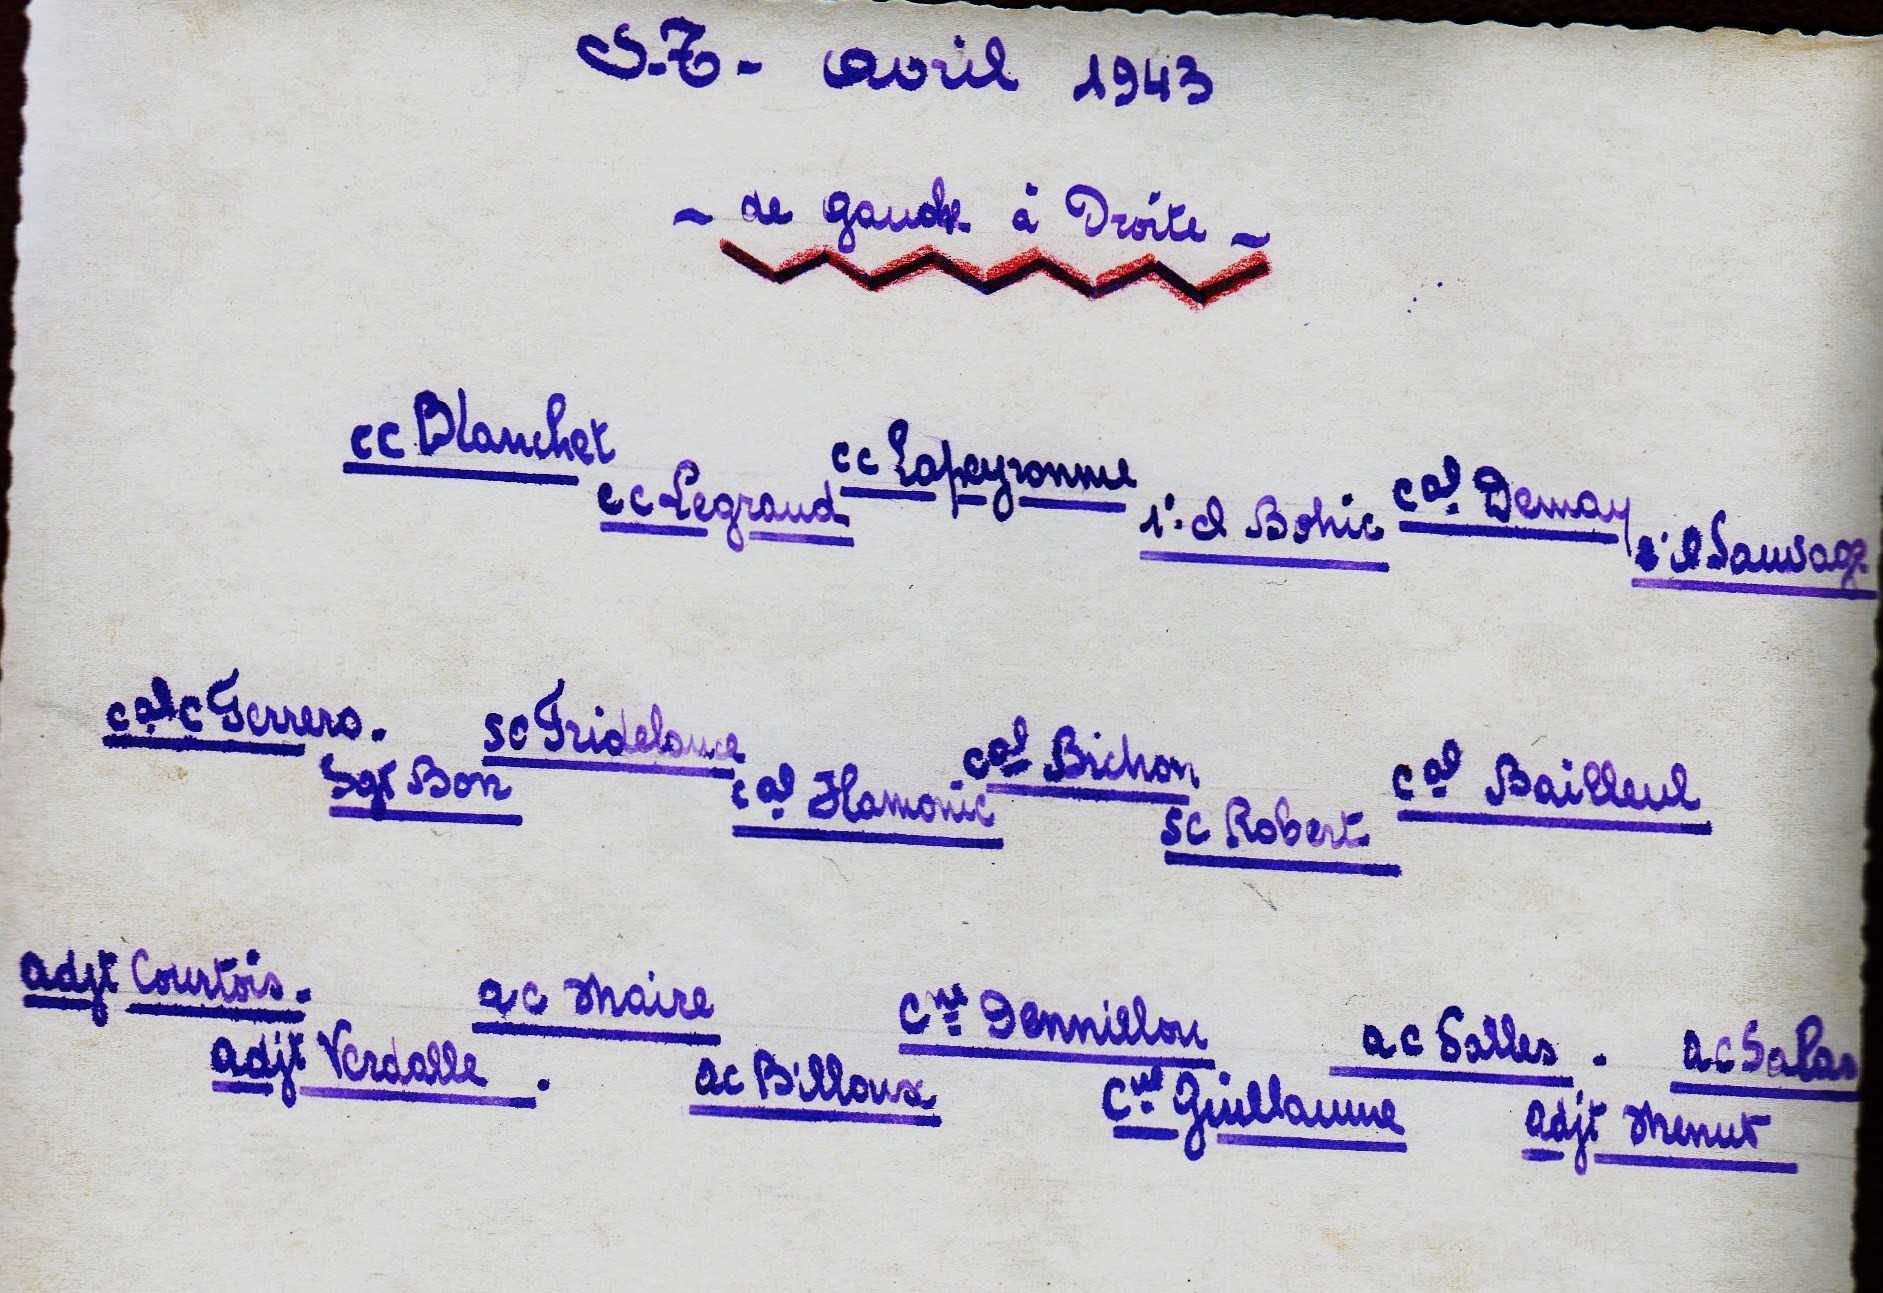 S.T - avril 1943
~ de gauche à Droite ~
cc Blanchet cc Legrand cc Lapeyronnie 1º.cl Bohic cal Demay 1º cl Sauvage
cal c Ferrero. Sgt Bon sc Fridelance cal Hamonic cal Bichon sc Robert cal Bailleul
adjt Courtois. adjt Verdalle. ac Maire ac Billoux Cne Denniellou Cne Guillaume ac Salles. adjt Menut ac Salas